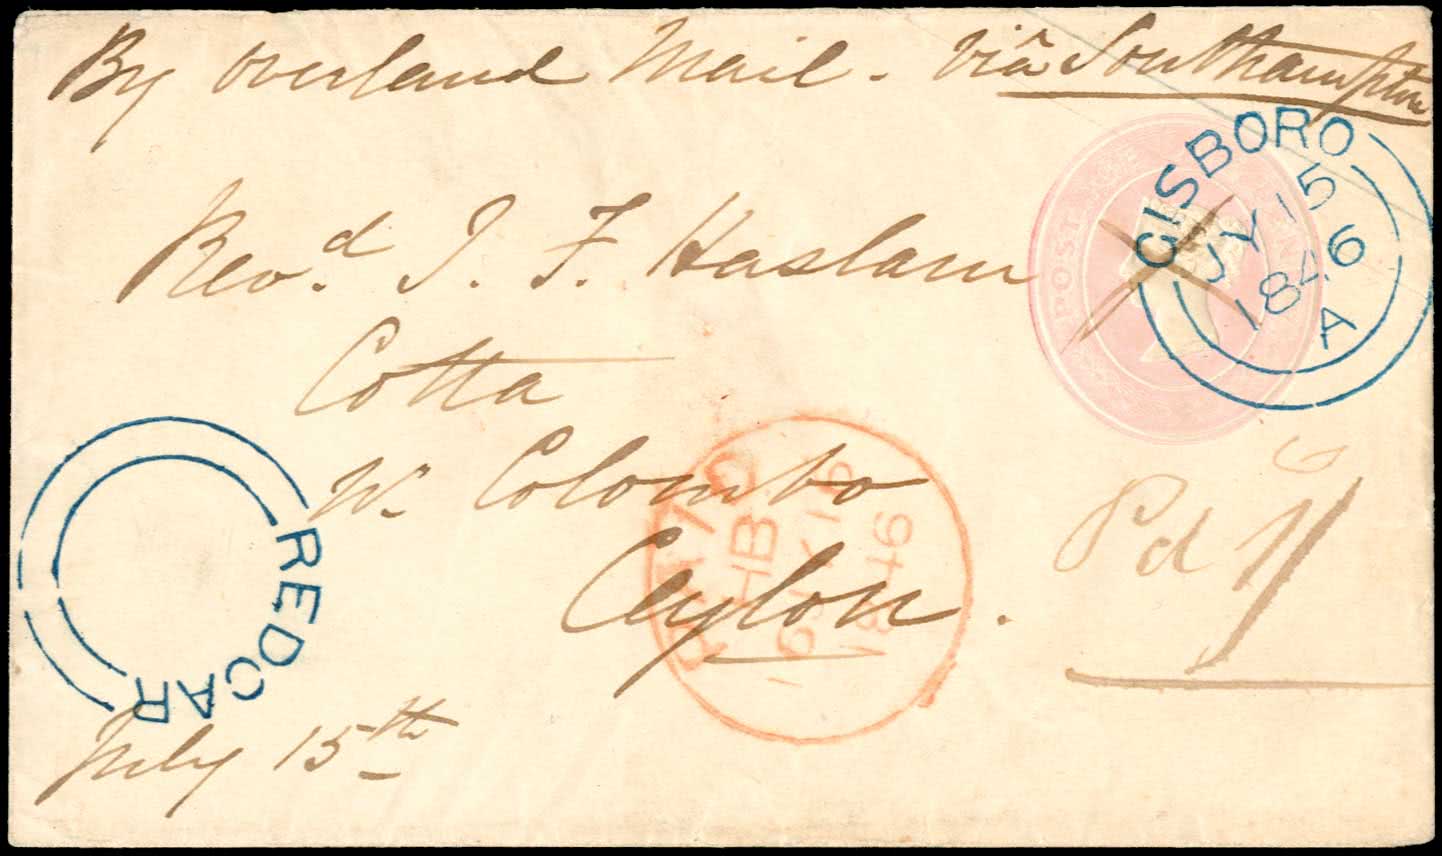 By Overland Mail. Viâ Southampton
Revd. J. F. Haslam
Cotta
Nr. Colombo
Ceylon.
July 15th
Pd 1/
GISBORO
JY 15
1846
A
REDCAR
POSTAGE
PAID
HB
1846